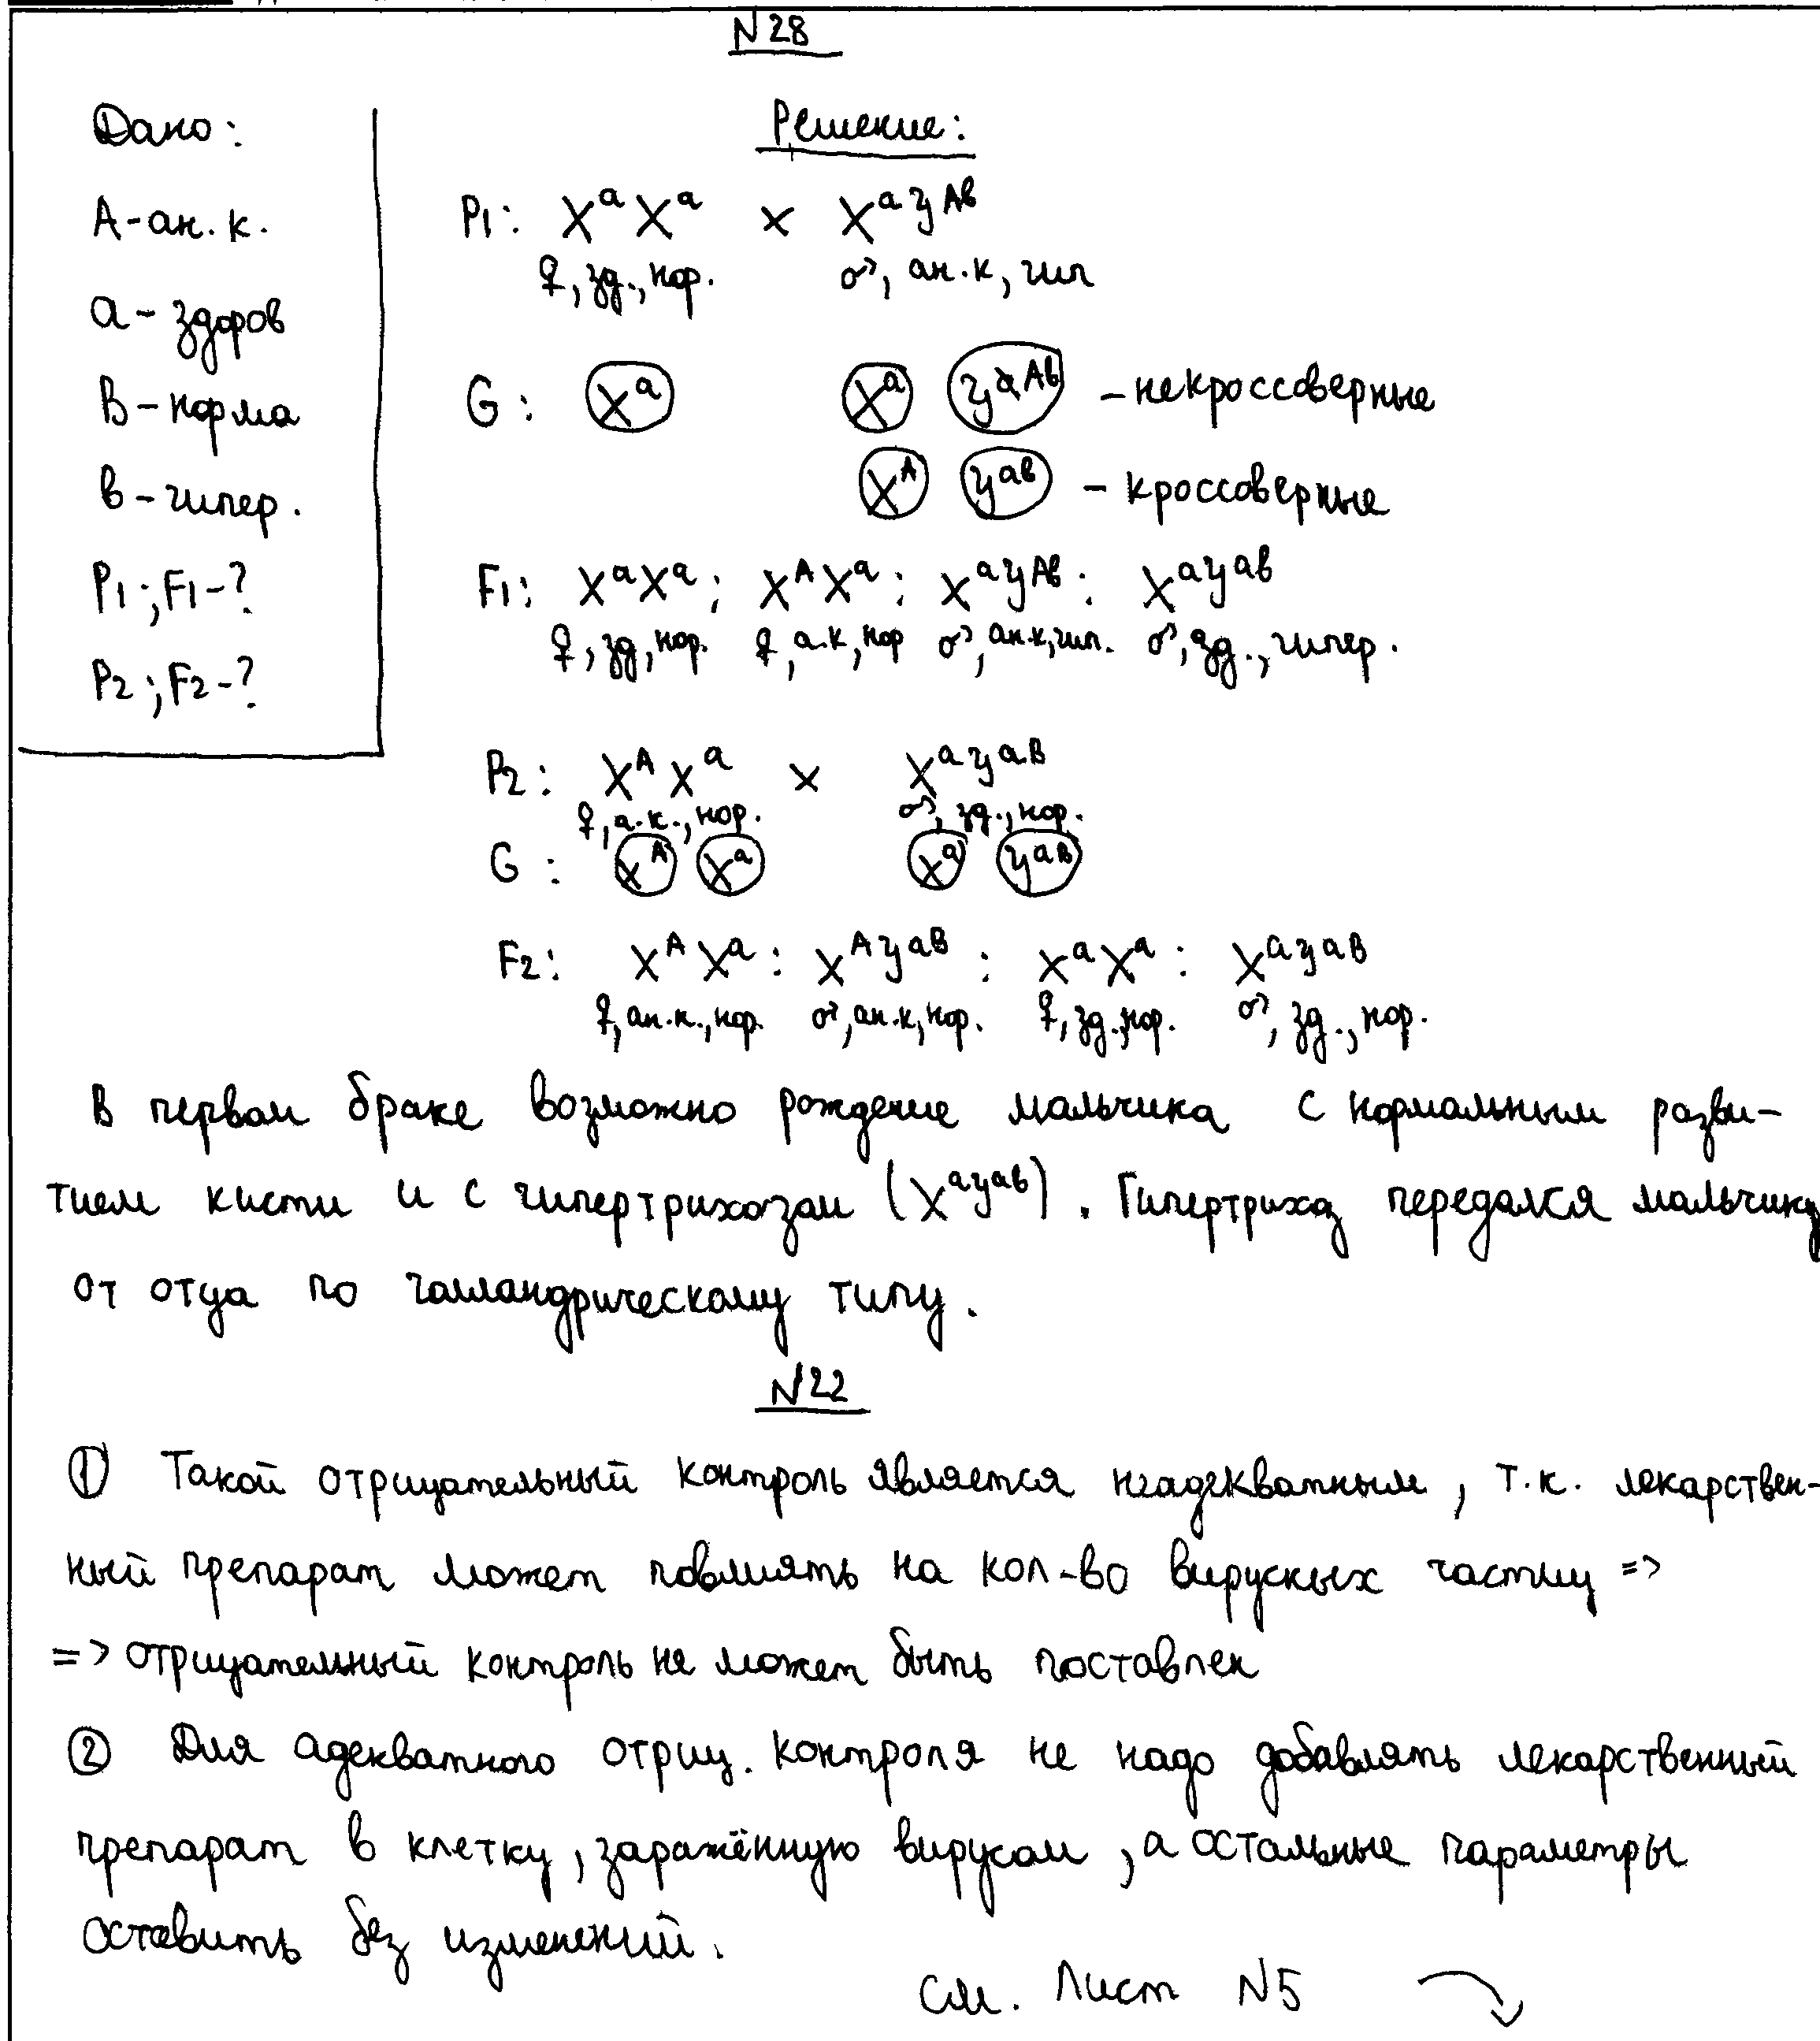 N28
Дано:
А-ан. к.
а- здоров
В-норма
в-гипер.
P1;F1-?
P2;F2-?
Решение:
P1: XᵃXᵃ x XᵃyᴬᵇB
♀, зд., нор. ♂, ан.к, гип
G: Xᵃ Xᵃ yᴬᵇ -некроссоверные
Xᴬ yᵃᵇ - кроссоверные
F1: XᵃXᵃ : XᴬXᵃ : Xᵃyᴬᵇ : Xᵃyᵃᵇ
♀, зд, нор. ♀, а.к, нор ♂, ан.к, гип. ♂, зд., гипер.
P2: XᴬXᵃ x Xᵃyᵃᴮ
♀, а.к., нор. ♂, зд., нор.
G: Xᴬ Xᵃ Xᵃ yᵃᴮ
F2: XᴬXᵃ : Xᴬyᵃᴮ : XᵃXᵃ : Xᵃyᵃᴮ
♀, ан.к., нор. ♂, ан.к, нор. ♀, зд., нор. ♂, зд., нор.
В первом браке возможно рождение мальчика с нормальным разви-
тием кисти и с гипертрихозом (Xᵃyᵃᵇ). Гипертрихоз передался мальчику
от отца по голландрическому типу.
N22
① Такой отрицательный контроль является неадекватным, т.к. лекарствен-
ный препарат может повлиять на кол-во вирусных частиц =>
=> отрицательный контроль не может быть поставлен
② Для адекватного отриц. контроля не надо добавлять лекарственный
препарат в клетку, заражённую вирусом, а остальные параметры
оставить без изменений.
См. Лист N5